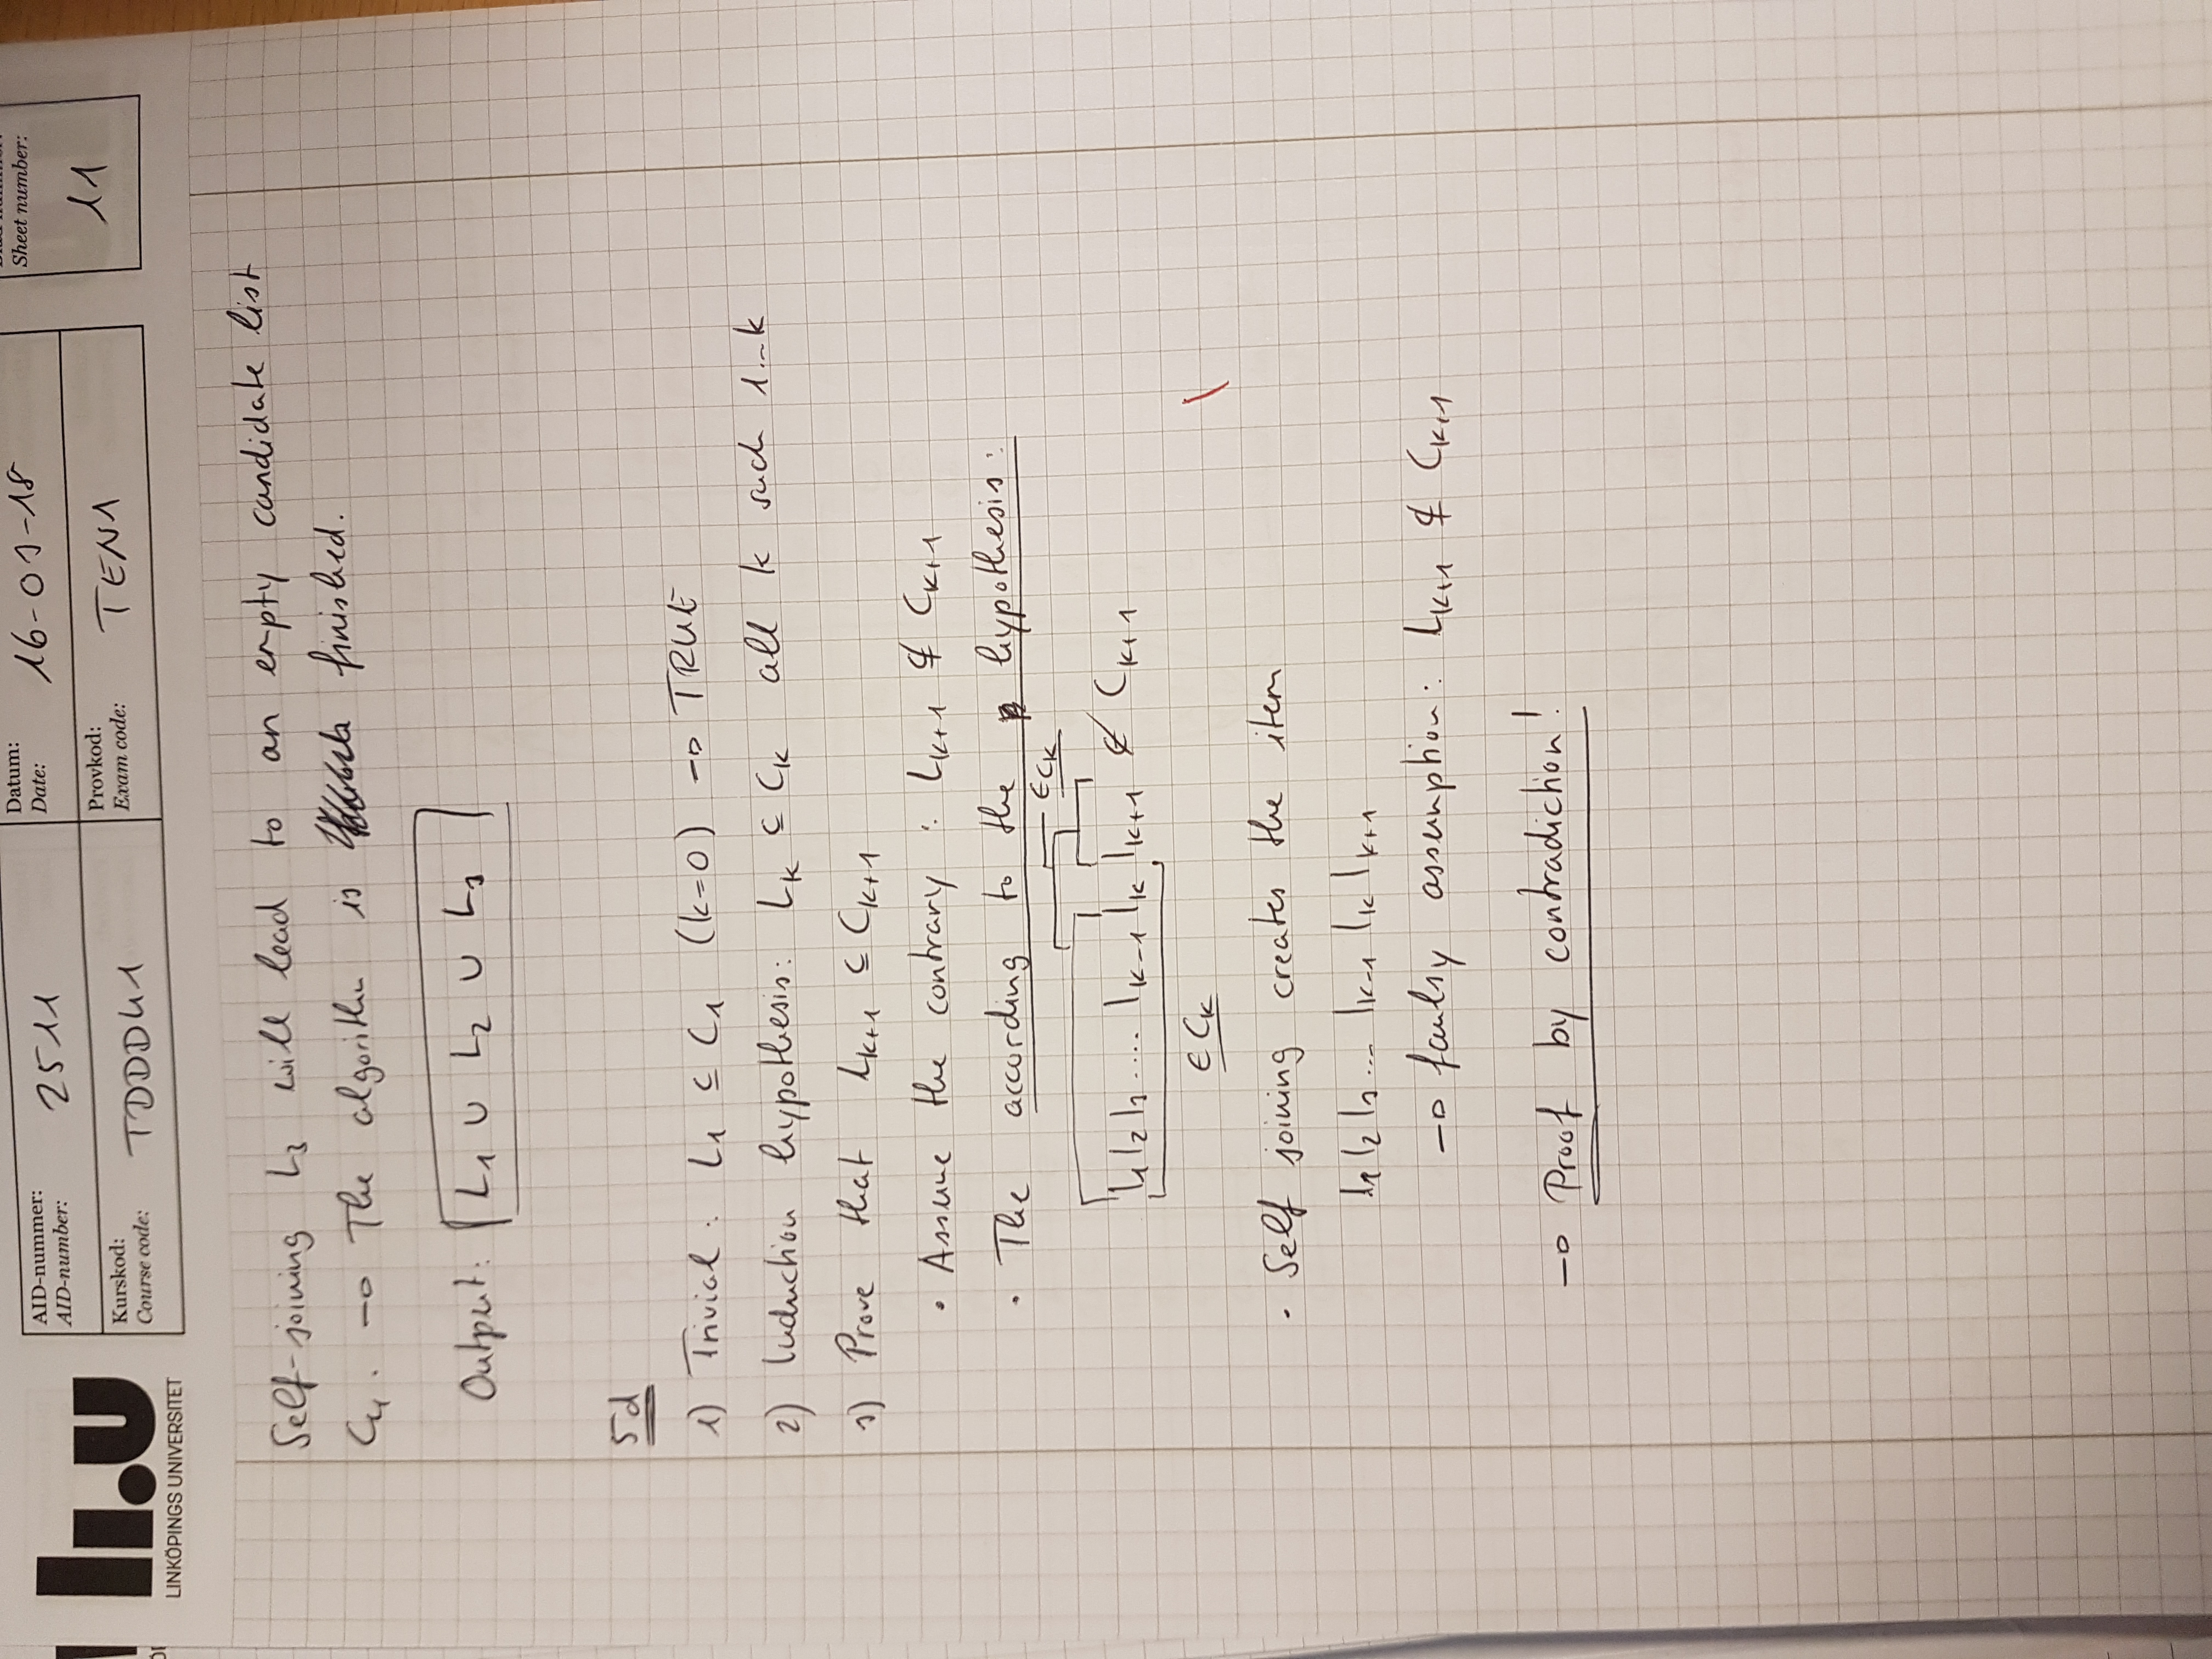 LINKÖPINGS UNIVERSITET
AID-nummer:
AID-number:
2511
Datum:
Date:
16-03-18
Sheet number:
11
Kurskod:
Course code:
TDDD41
Provkod:
Exam code:
TEN1
Self-joining L3 will lead to an empty candidate list
C4. → The algorithm is finished.
Output: L1 ∪ L2 ∪ L3
5d
1) Trivial: L1 ⊆ C1 (k=0) → TRUE
2) Induction hypothesis: Lk ⊆ Ck all k such 1...k
3) Prove that Lk+1 ⊆ Ck+1
• Assume the contrary: Lk+1 ⊈ Ck+1
• The according to the hypothesis:
∈ Ck
l1 l2 l3 .... lk-1 lk lk+1 ∉ Ck+1
∈ Ck
• Self joining creates the item
l1 l2 l3 ... lk-1 lk lk+1
→ faulsy assumption: Lk+1 ⊈ Ck+1
→ Proof by contradiction!